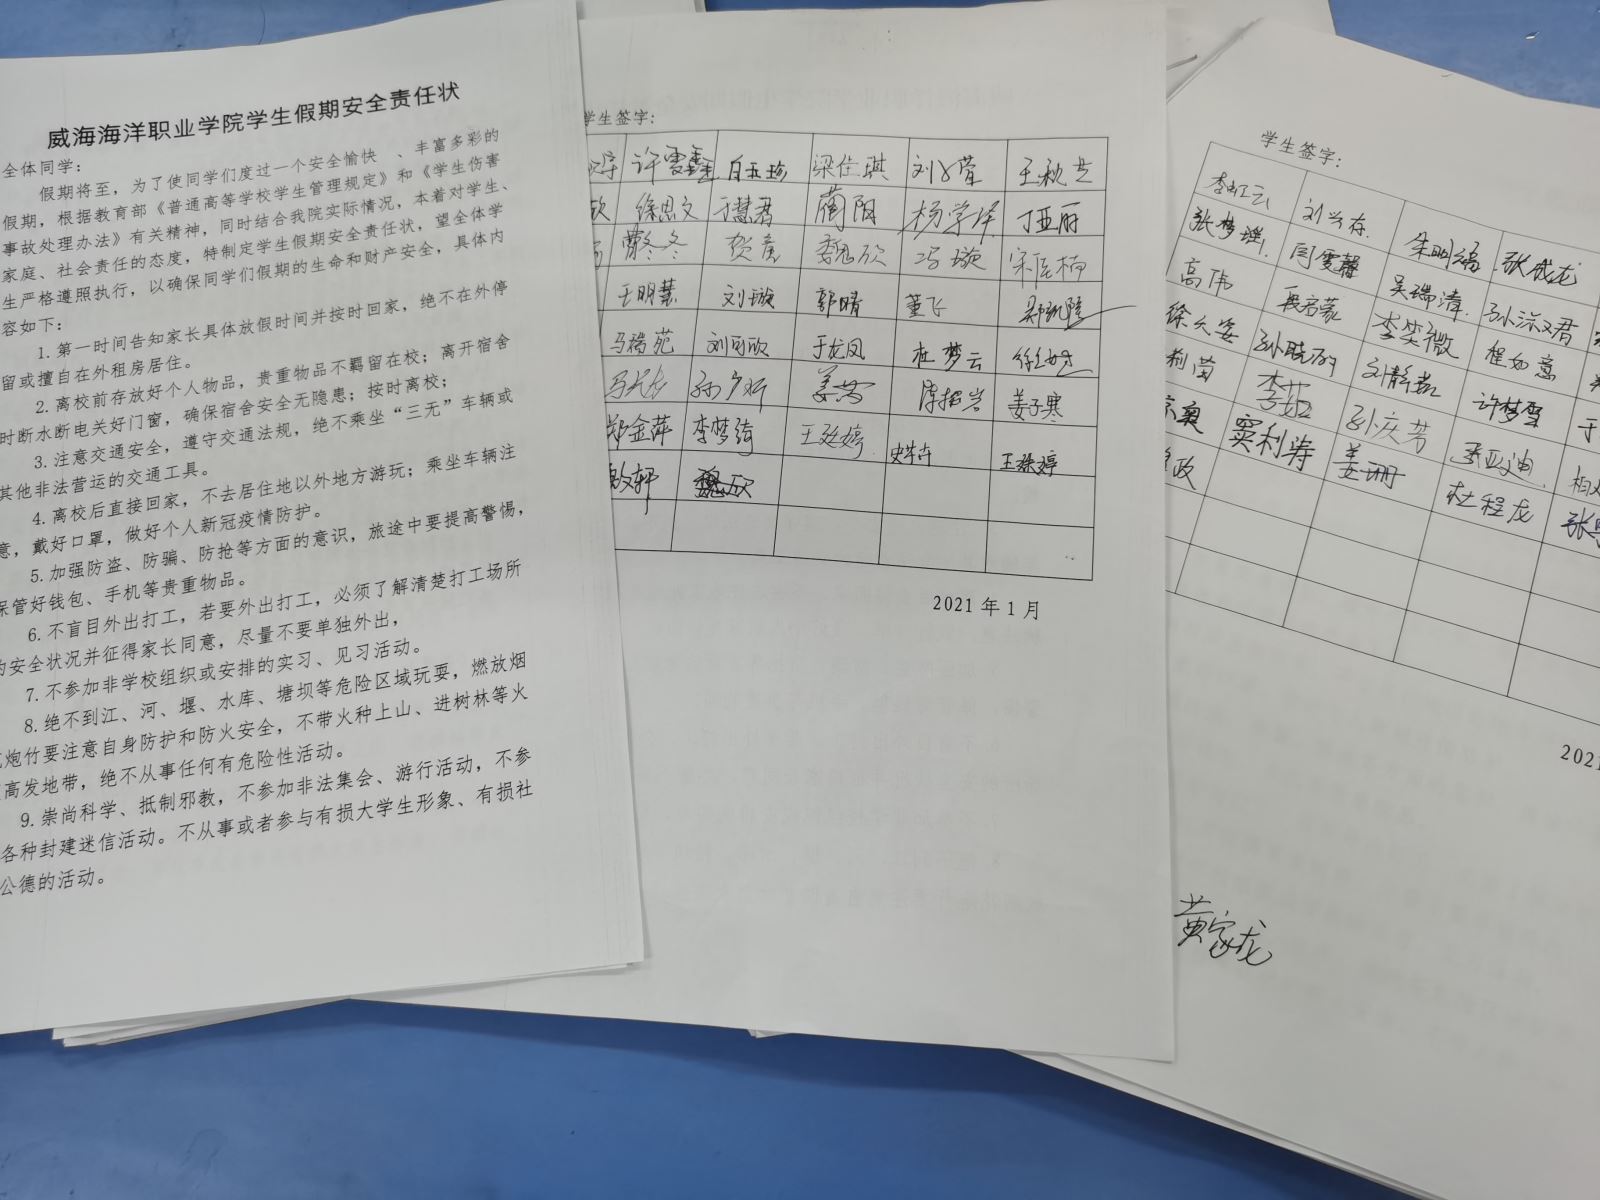 威海海洋职业学院学生假期安全责任状
全体同学：
假期将至，为了使同学们度过一个安全愉快 、丰富多彩的
假期，根据教育部《普通高等学校学生管理规定》和《学生伤害
事故处理办法》有关精神，同时结合我院实际情况，本着对学生、
家庭、社会责任的态度，特制定学生假期安全责任状，望全体学
生严格遵照执行，以确保同学们假期的生命和财产安全，具体内
容如下：
1.第一时间告知家长具体放假时间并按时回家，绝不在外停
留或擅自在外租房居住。
2.离校前存放好个人物品，贵重物品不羁留在校；离开宿舍
时断水断电关好门窗，确保宿舍安全无隐患；按时离校；
3.注意交通安全，遵守交通法规，绝不乘坐“三无”车辆或
其他非法营运的交通工具。
4.离校后直接回家，不去居住地以外地方游玩；乘坐车辆注
意，戴好口罩，做好个人新冠疫情防护。
5.加强防盗、防骗、防抢等方面的意识，旅途中要提高警惕，
保管好钱包、手机等贵重物品。
6.不盲目外出打工，若要外出打工，必须了解清楚打工场所
的安全状况并征得家长同意，尽量不要单独外出，
7.不参加非学校组织或安排的实习、见习活动。
8.绝不到江、河、堰、水库、塘坝等危险区域玩耍，燃放烟
炮竹要注意自身防护和防火安全，不带火种上山、进树林等火
高发地带，绝不从事任何有危险性活动。
9.崇尚科学、抵制邪教，不参加非法集会、游行活动，不参
各种封建迷信活动。不从事或者参与有损大学生形象、有损社
公德的活动。
学生签字：
许雪鑫 白玉珍 梁仕琪 王秋兰
徐思文 于慧君 蔺阳 杨学泽 丁亚丽
贺彦 魏欣 冯璇
王明慧 刘璇 郭晴 董飞
马楷苑 刘可欣 于龙凤 杜梦云
姜萍 陈振兴 姜子寒
郑金萍 李梦绮 王廷婷 王琳婷
魏欣
2021 年 1 月
学生签字：
李虹云 刘兴存 朱明瑞 张成龙
张梦瑶 闫雯馨 吴瑞清 孙淑君
高伟 段启蒙 李奕微 程如意
徐久姿 孙晓丽 刘静茹 许梦雪
利茵 李茹 孙庆芳 季亚迪
窦利涛 姜珊 杜程龙
政
2021
黄家龙